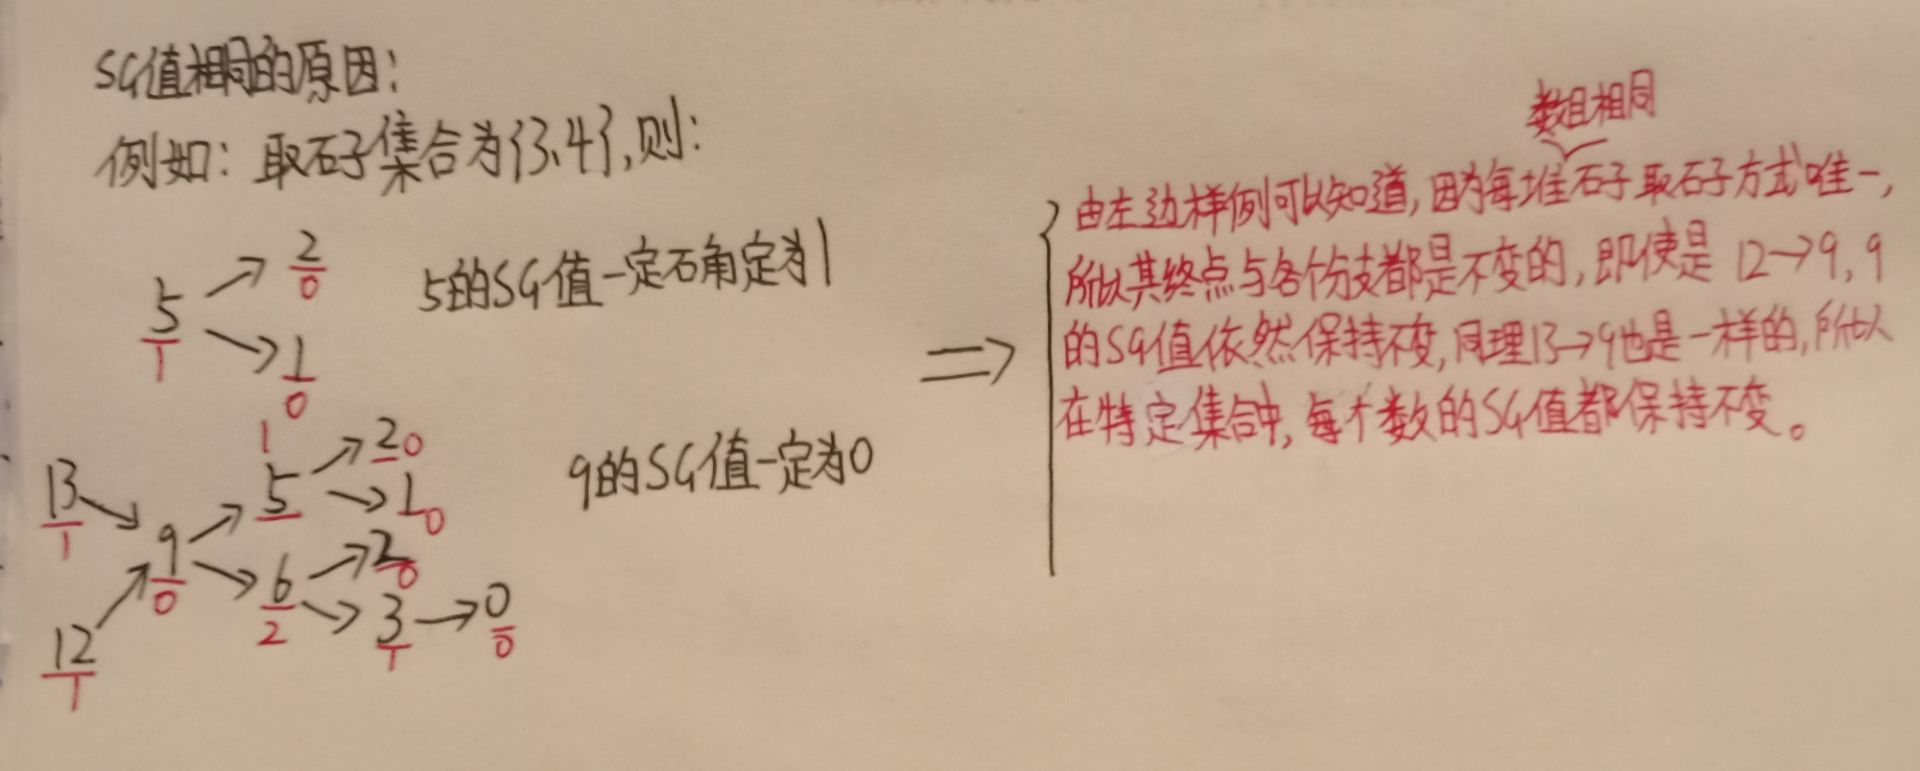 SG值相同的原因:
例如: 取石子集合为{3,4},则:
5 → 2
1 0
→ 1
0
5的SG值一定确定为1
13 → 9 → 5 → 2 0
1 0 1 → 1 0
12 → 9 → 6 → 2 0
1 2 → 3 → 0
1 0
9的SG值一定为0
⇒
数目相同
由左边样例可以知道,因为每堆石子取石子方式唯一,
所以其终点与各个分支都是不变的,即使是 12→9,9
的SG值依然保持不变,同理13→9也是一样的,所以
在特定集合中,每个数的SG值都保持不变。